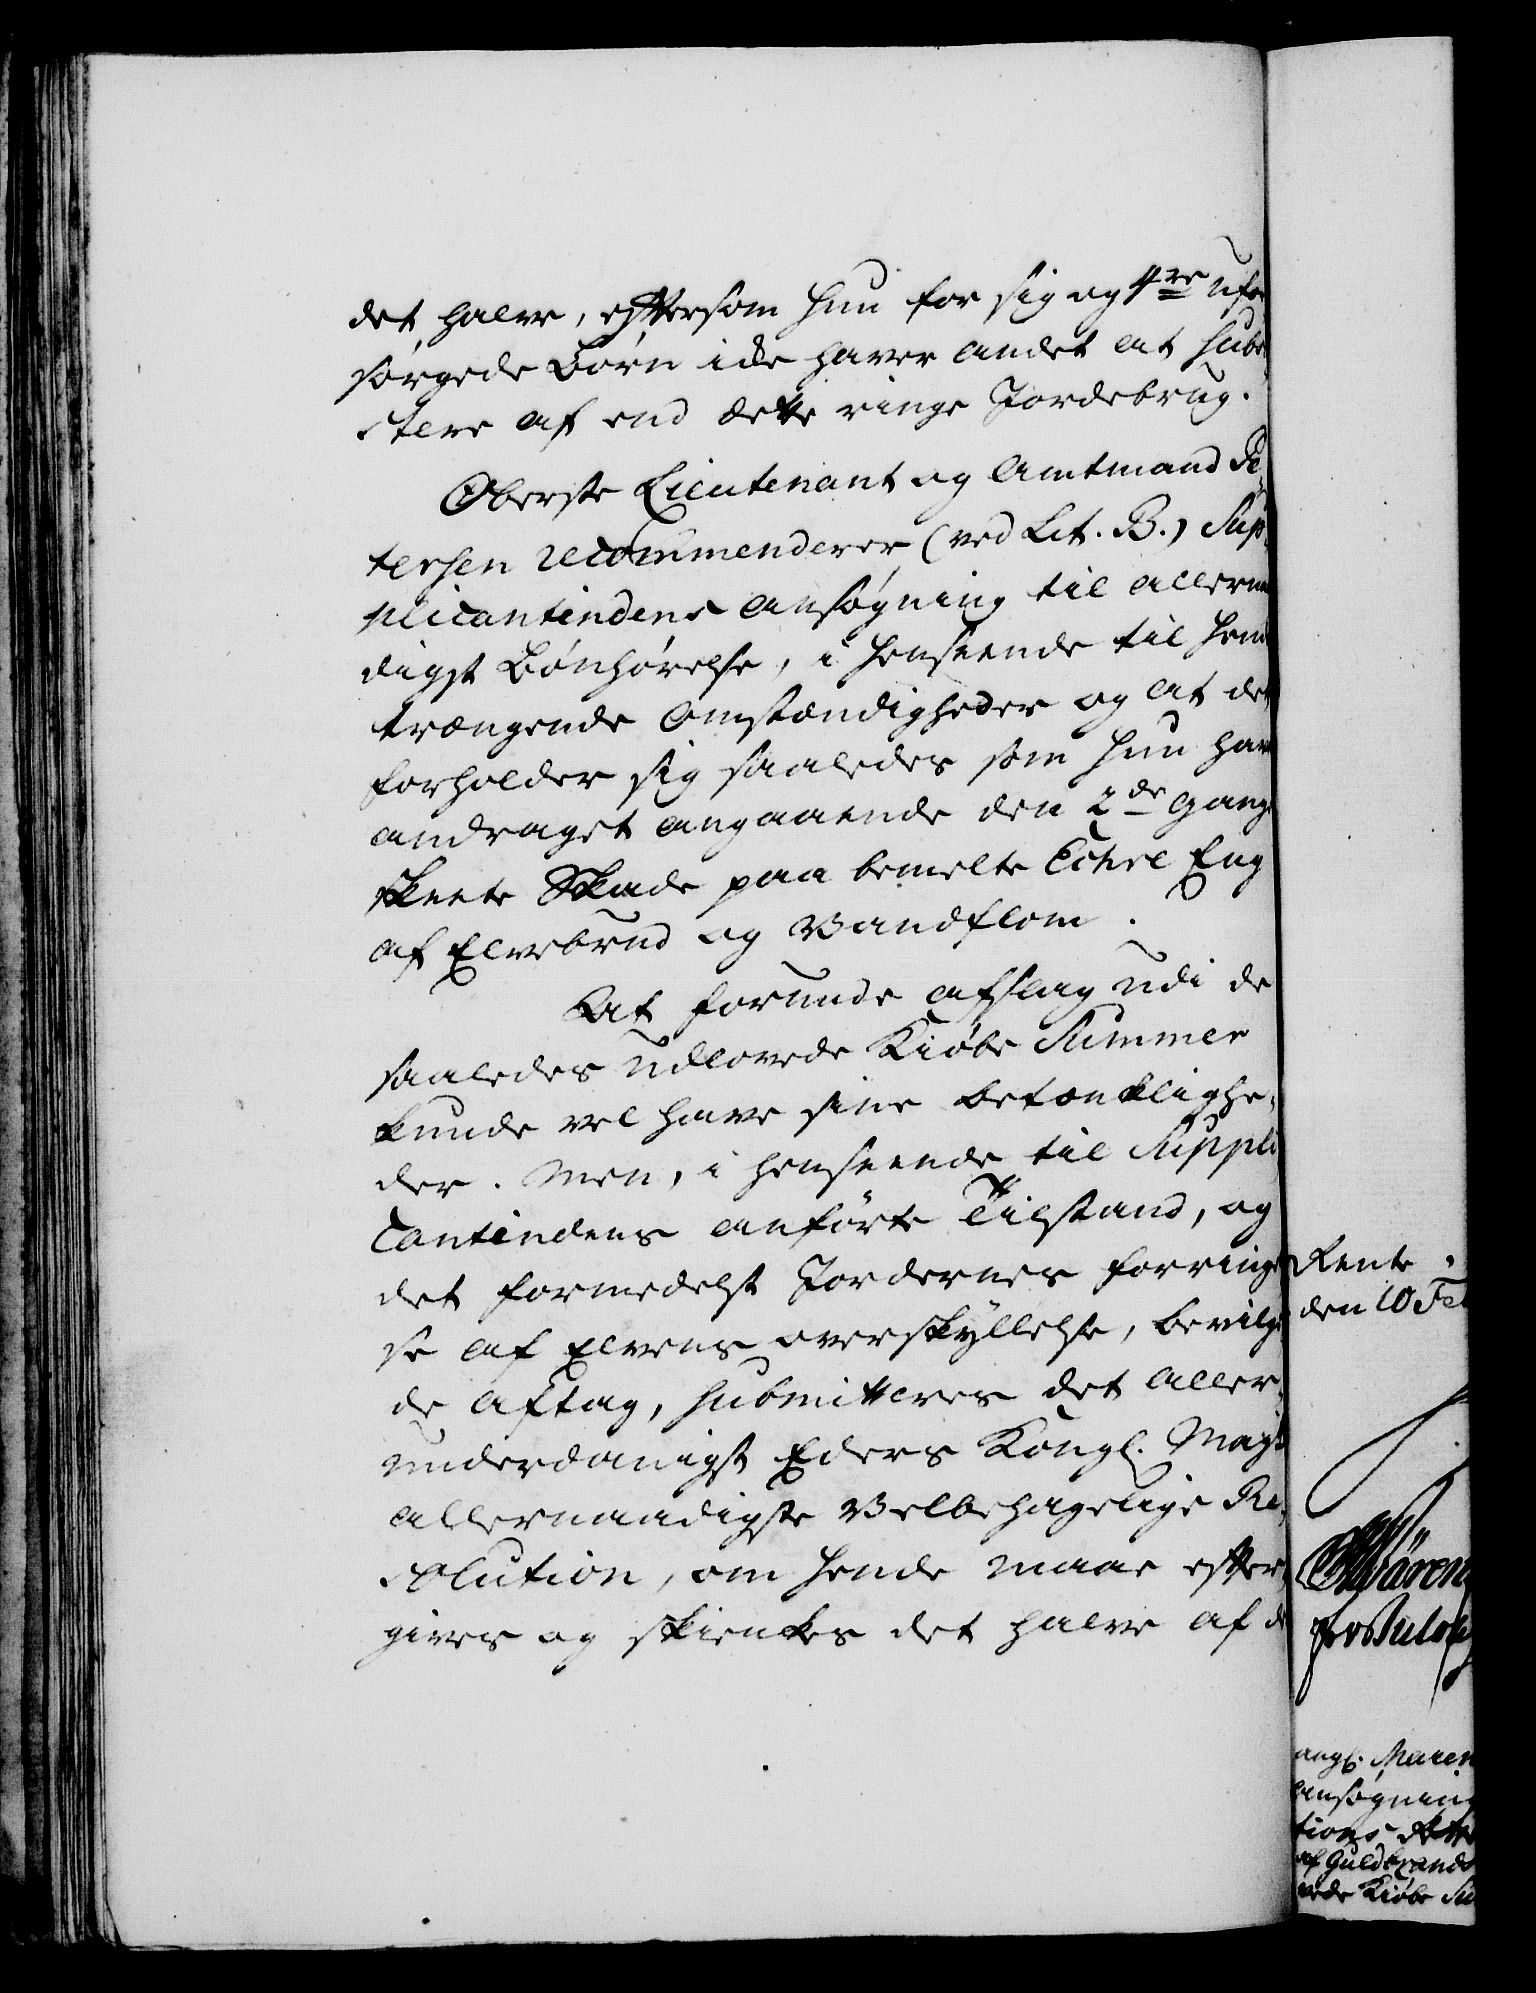 det halve, eftersom hun for sig og 4re ufor
sørgede Børn icke haver andet at subsi
stere af end dette ringe Jordebrug.
Oberste Lieutenant og Amtmand Pe,
tersen recommenderer (ved Lit. B.) Sup,
plicantindens ansøgning til allernaa
digst Bønhørelse, i henseende til hen
trængende Omstændigheder og at det
forholder sig saaledes som hun har
andraget angaaende den 2de gange
skeete Skade paa bemelte Echre Eng
af Elvebrud og Vandflom.
At forunde afslag udi de
saaledes udlovede Kiøbe Summer
kunde vel have sine betænkelighe,
der. Men, i henseende til Suppli
cantindens anførte Tilstand, og
det formedelst Jordernes forringel
se af Elvens overskyllelse, bevilge
de Aftag, submitteres det aller,
underdanigst Eders Kongl. Mayts
allernaadigste Velbehagelige Re,
solution, om hende maae efter
gives og skienkes det halve af d
Rente
den 10 Feb
angl. Maren
ansøgning
tions
af Guldbrands
vede Kiøbe Su